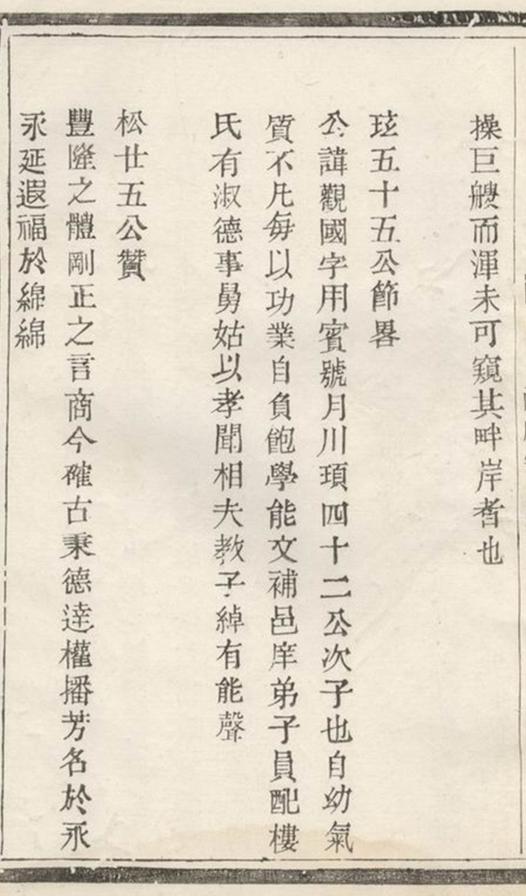 操巨艘而渾未可窺其畔岸者也
玹五十五公節畧
公諱觀國字用賓號月川頊四十二公次子也自幼氣
質不凡每以功業自負飽學能文補邑庠弟子員配樓
氏有淑德事舅姑以孝聞相夫教子綽有能聲
松廿五公贊
豐隆之體剛正之言商今確古秉德達權播芳名於永
永延遐福於綿綿